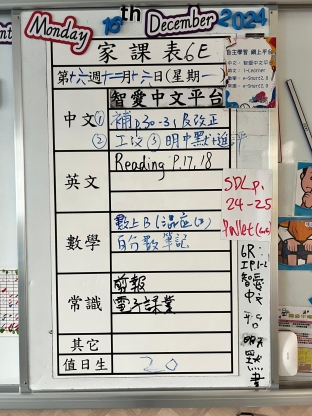 Monday 16th December 2024
家課表6E
第十六週十二月十六日(星期一)
智愛中文平台
中文 ① 補p.30-31及改正
② 工收 ③ 明中默
英文 Reading P.17,18
SDL p.
24-25
數學 數上B
百分數筆記
常識 剪報
電子課業
6R:
智愛
中文
平台
明天
默書
其它
值日生 20
自主學習 網上平台
中文:智愛中文平台
英文:i-Learner